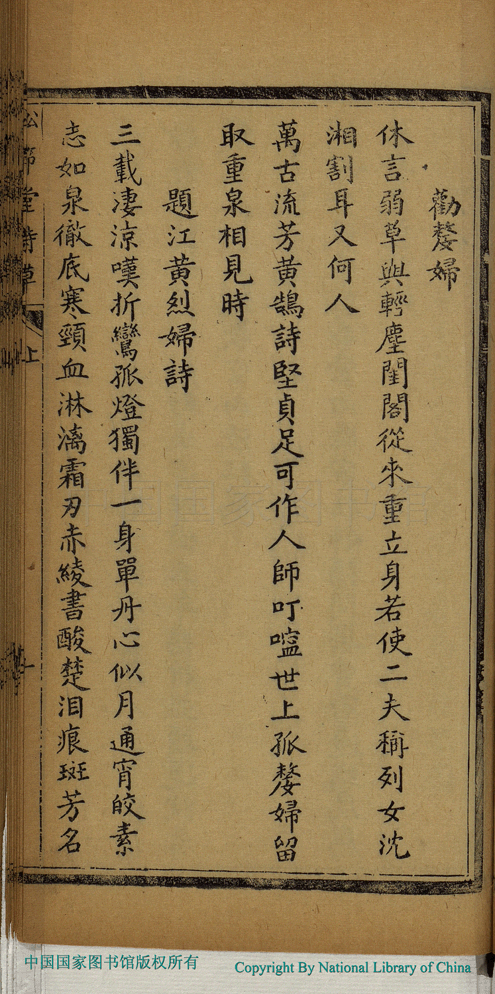 勸嫠婦
休言弱草與輕塵閨閣從來重立身若使二夫稱列女沈
湘割耳又何人
萬古流芳黃鵠詩堅貞足可作人師叮嚀世上孤嫠婦留
取重泉相見時
題江黃烈婦詩
三載淒涼嘆折鸞孤燈獨伴一身單丹心似月通宵皎素
志如泉徹底寒頸血淋漓霜刃赤綾書酸楚泪痕斑芳名
上
中国国家图书馆版权所有
Copyright By National Library of China